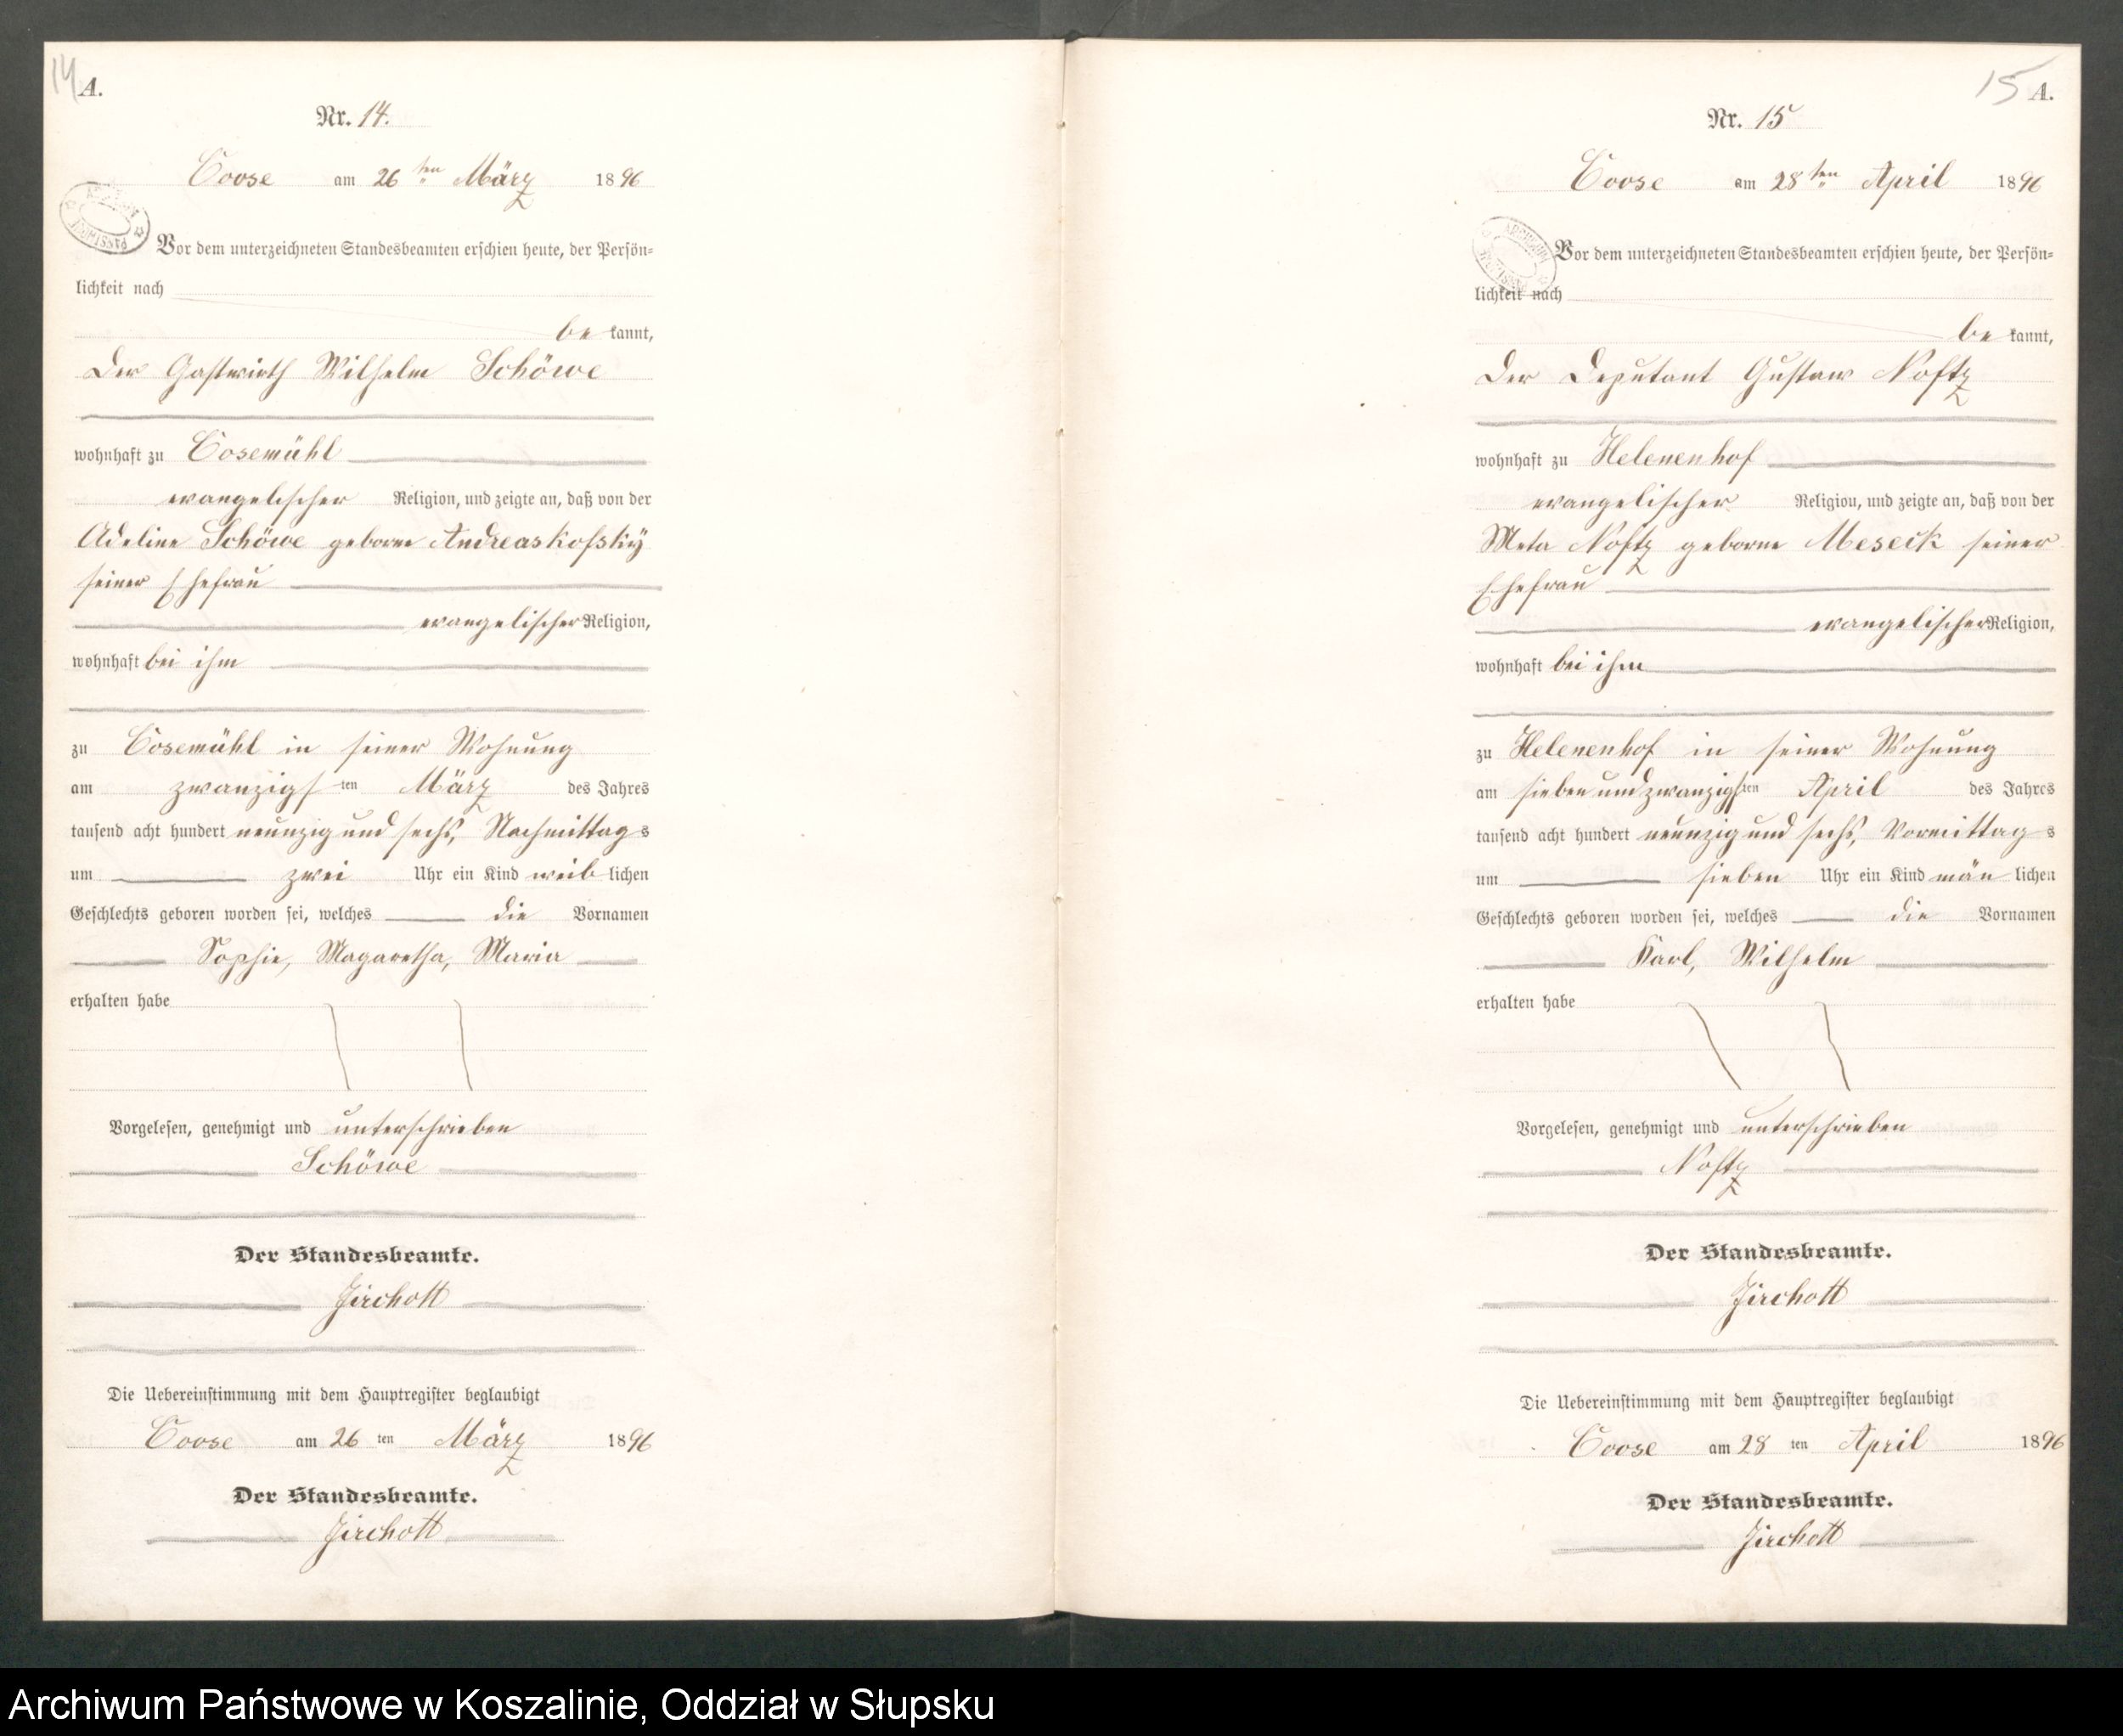 14
A.
Nr. 14.
Coose am 26ten März 1896
Vor dem unterzeichneten Standesbeamten erschien heute, der Persön-
lichkeit nach
be kannt,
Der Gastwirth Wilhelm Schöwe
wohnhaft zu Cosemühl
evangelischer Religion, und zeigte an, daß von der
Adeline Schöwe geborne Andreaskofsky
seiner Ehefrau
evangelischer Religion,
wohnhaft bei ihm
zu Cosemühl in seiner Wohnung
am zwanzigsten März des Jahres
tausend acht hundert neunzig und sechs, Nachmittags
um zwei Uhr ein Kind weiblichen
Geschlechts geboren worden sei, welches die Vornamen
Sophie, Magaretha, Maria
erhalten habe
Vorgelesen, genehmigt und unterschrieben
Schöwe
Der Standesbeamte.
Jirchott
Die Uebereinstimmung mit dem Hauptregister beglaubigt
Coose am 26ten März 1896
Der Standesbeamte.
Jirchott
15
A.
Nr. 15
Coose am 28ten April 1896
Vor dem unterzeichneten Standesbeamten erschien heute, der Persön-
lichkeit nach
be kannt,
Der Deputant Gustaw Noftz
wohnhaft zu Helenenhof
evangelischer Religion, und zeigte an, daß von der
Meta Noftz geborne Meseck seiner
Ehefrau
evangelischer Religion,
wohnhaft bei ihm
zu Helenenhof in seiner Wohnung
am sieben und zwanzigsten April des Jahres
tausend acht hundert neunzig und sechs, Vormittags
um sieben Uhr ein Kind män lichen
Geschlechts geboren worden sei, welches die Vornamen
Karl, Wilhelm
erhalten habe
Vorgelesen, genehmigt und unterschrieben
Noftz
Der Standesbeamte.
Jirchott
Die Uebereinstimmung mit dem Hauptregister beglaubigt
Coose am 28ten April 1896
Der Standesbeamte.
Jirchott
Archiwum Państwowe w Koszalinie, Oddział w Słupsku